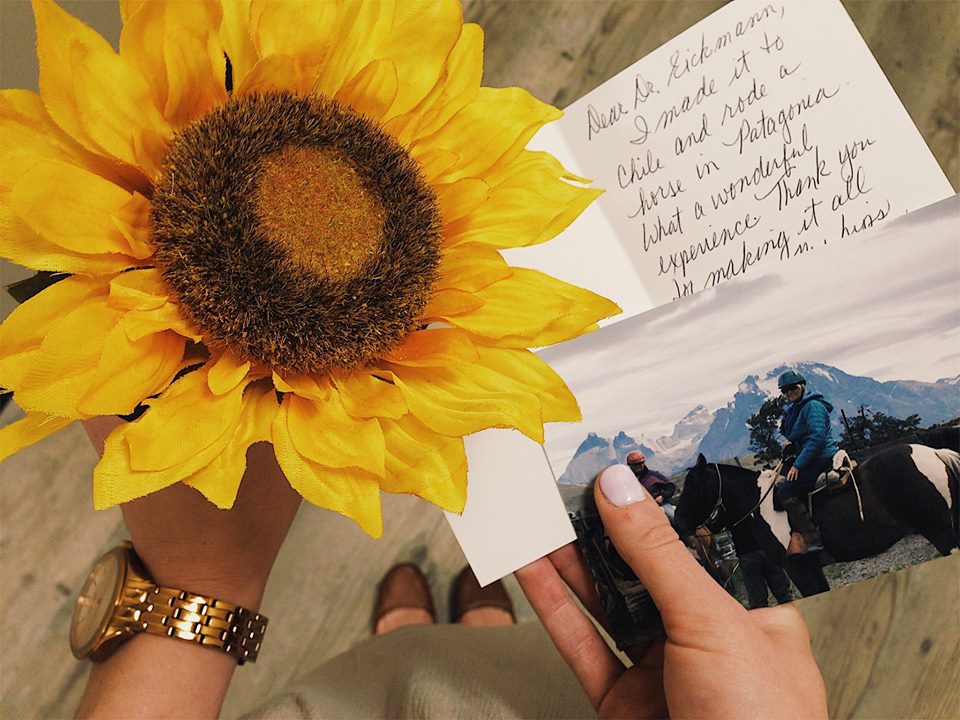 Dear Dr. Eickmann,
I made it to
Chile and rode a
horse in Patagonia.
What a wonderful
experience. Thank you
for making it all